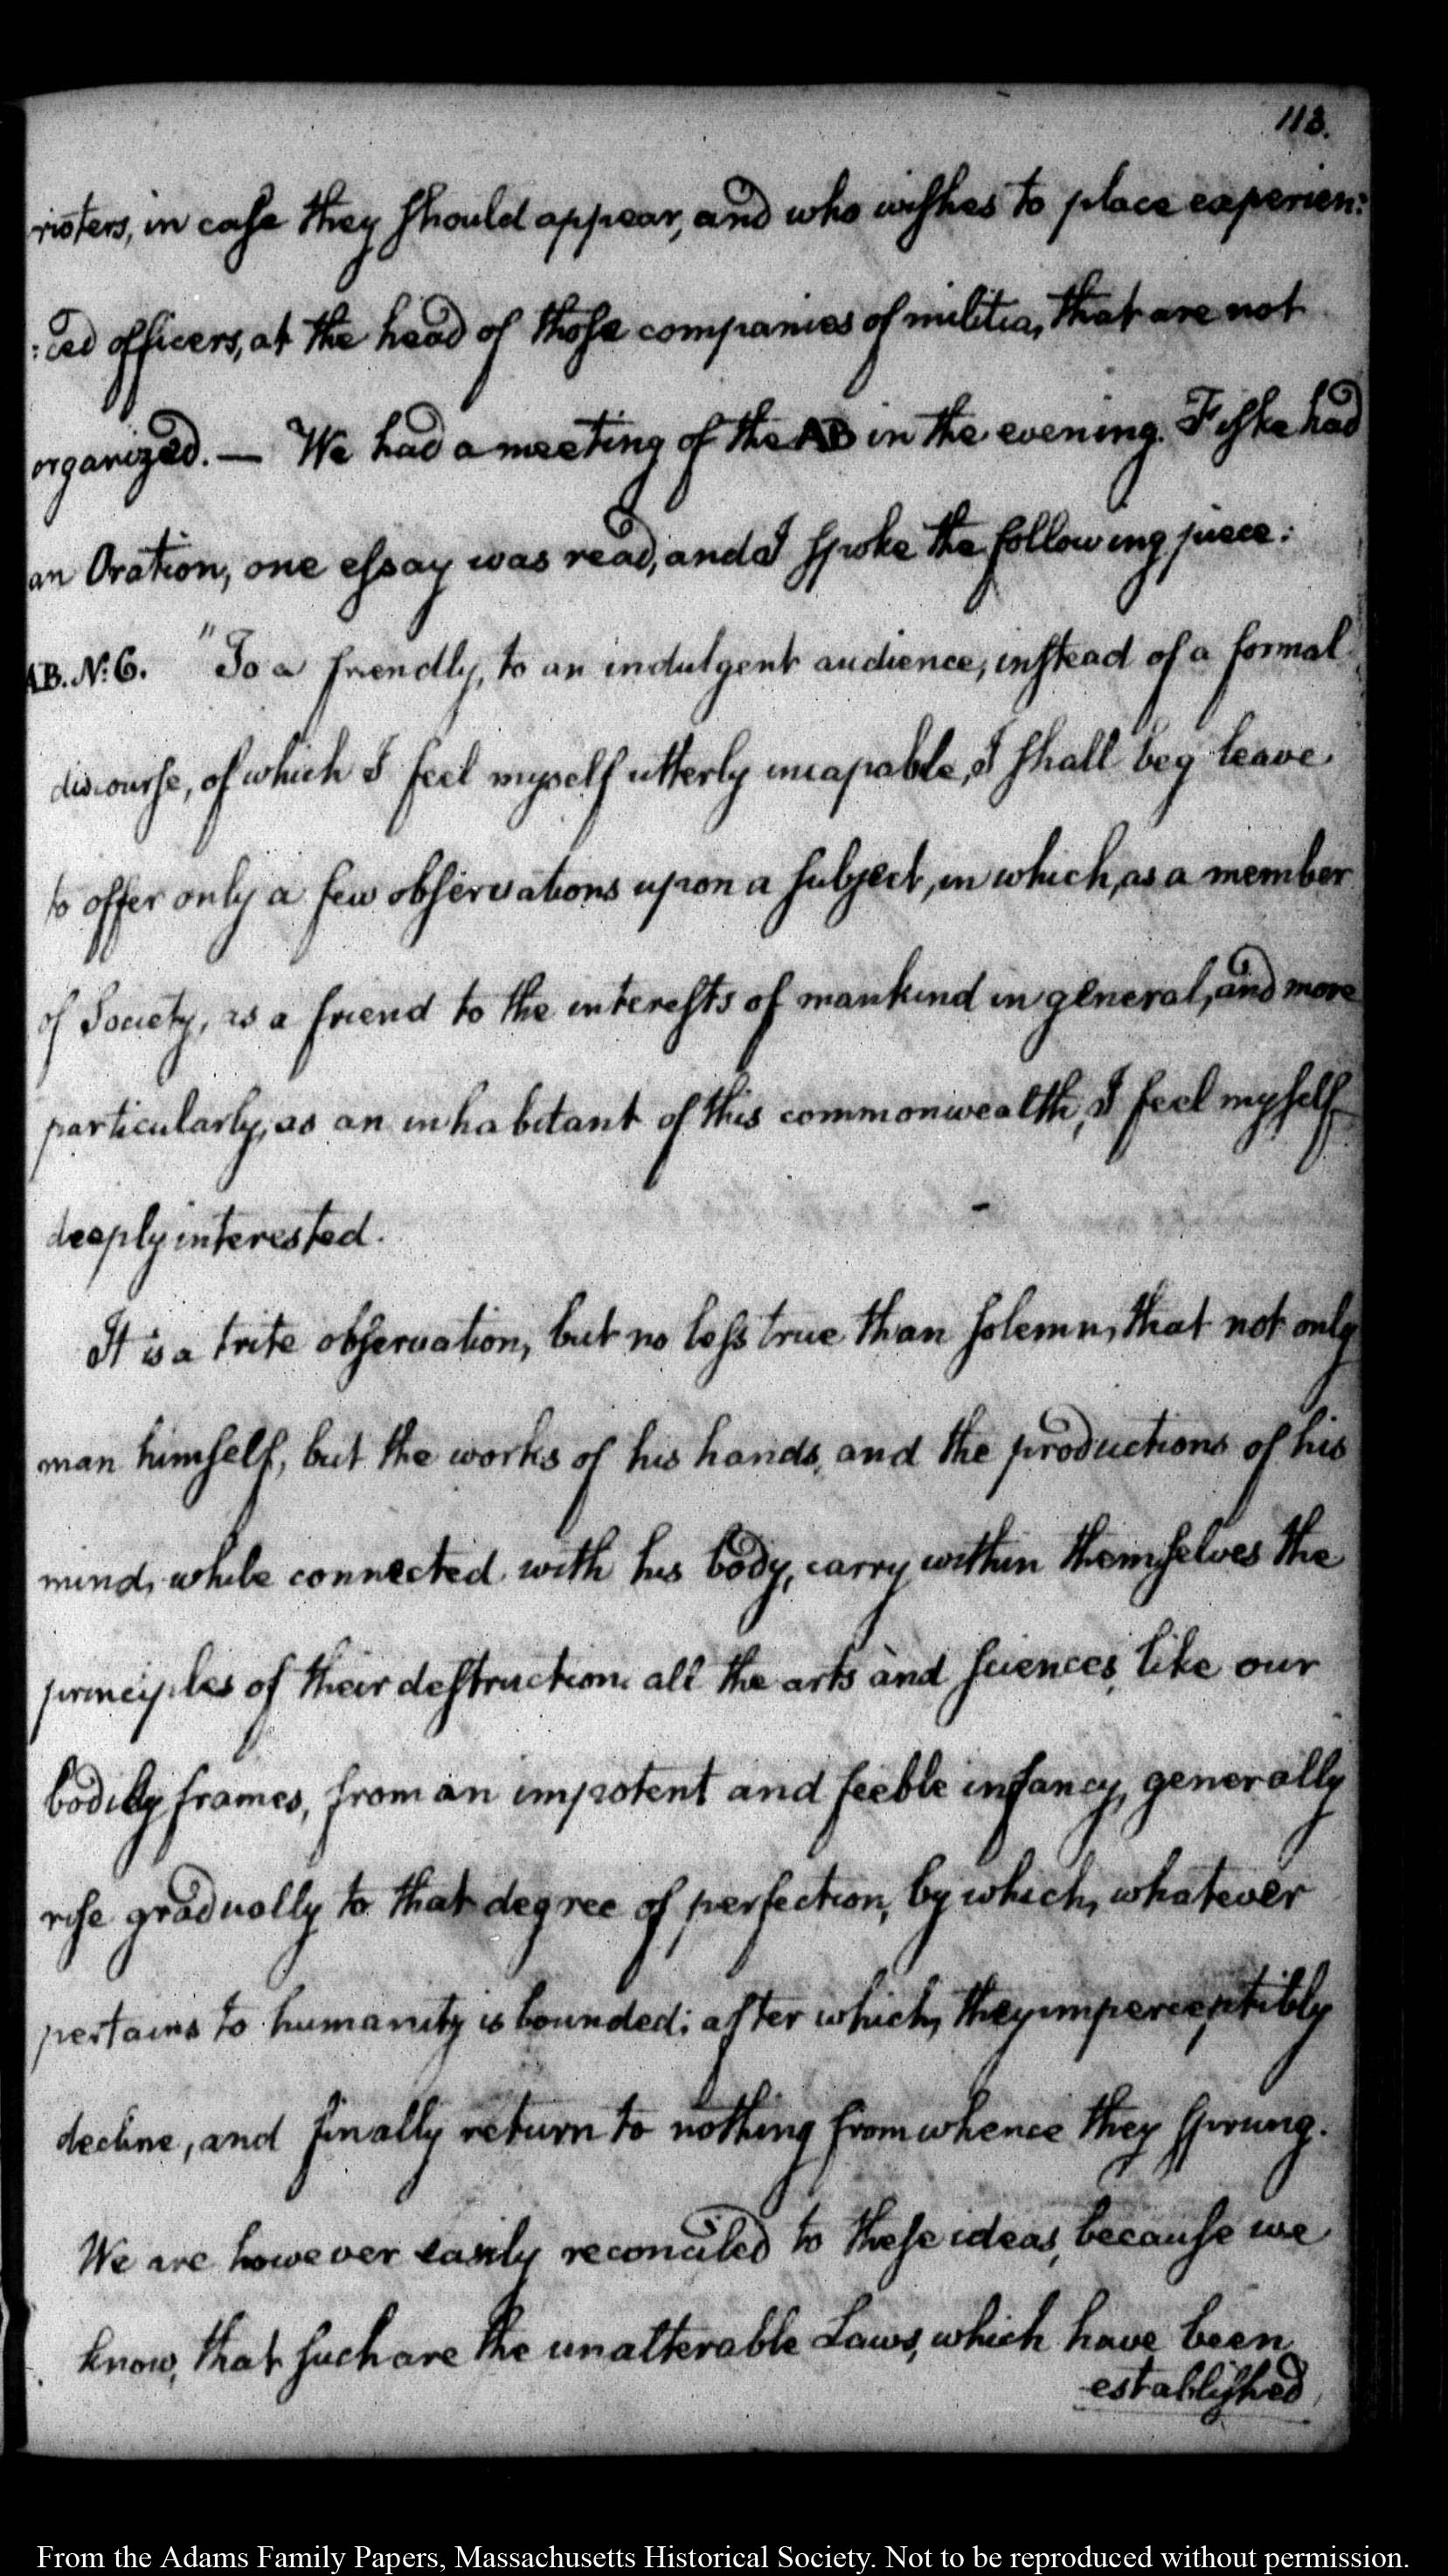 113.
rioters, in case they should appear, and who wishes to place experien:
:ced officers, at the head of those companies of militia, that are not
organized. — We had a meeting of the AB in the evening. Fiske had
an Oration, one essay was read, and I spoke the following piece:
AB. N: 6. "To a friendly, to an indulgent audience, instead of a formal
discourse, of which I feel myself utterly incapable, I shall beg leave
to offer only a few observations upon a subject, in which, as a member
of Society, as a friend to the interests of mankind in general, and more
particularly, as an inhabitant of this commonwealth, I feel myself
deeply interested.
It is a trite observation, but no less true than solemn, that not only
man himself, but the works of his hands, and the productions of his
mind, while connected with his body, carry within themselves the
principles of their destruction. all the arts and sciences, like our
bodily frames, from an impotent and feeble infancy, generally
rise gradually to that degree of perfection, by which, whatever
pertains to humanity is bounded; after which, they imperceptibly
decline, and finally return to nothing from whence they sprung.
We are however easily reconciled to these ideas, because we
know, that such are the unalterable Laws, which have been
established
From the Adams Family Papers, Massachusetts Historical Society. Not to be reproduced without permission.